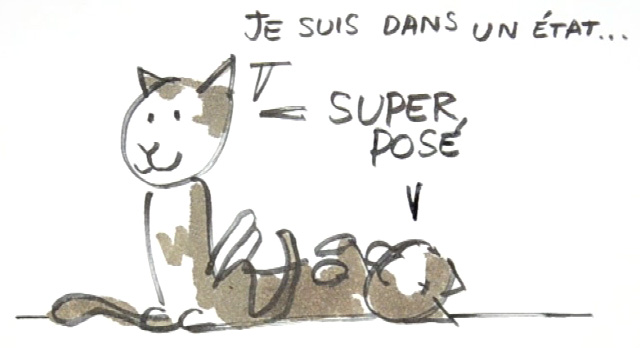 JE SUIS DANS UN ÉTAT...
SUPER
POSÉ